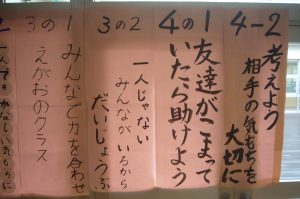 4-2
考えよう
相手の気もちを
大切に
4の1
友達がこまって
いたら助けよう
3の2
一人じゃない
みんながいるから
だいじょうぶ
3の1
みんなで力を合わせ
えがおのクラス
2
一人でもかなしい気もちに